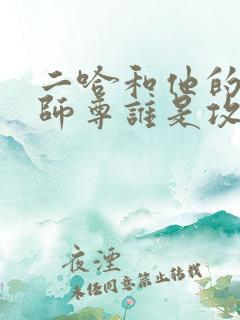 二哈和他的
師尊誰是攻
夜湮
未经同意禁止转载